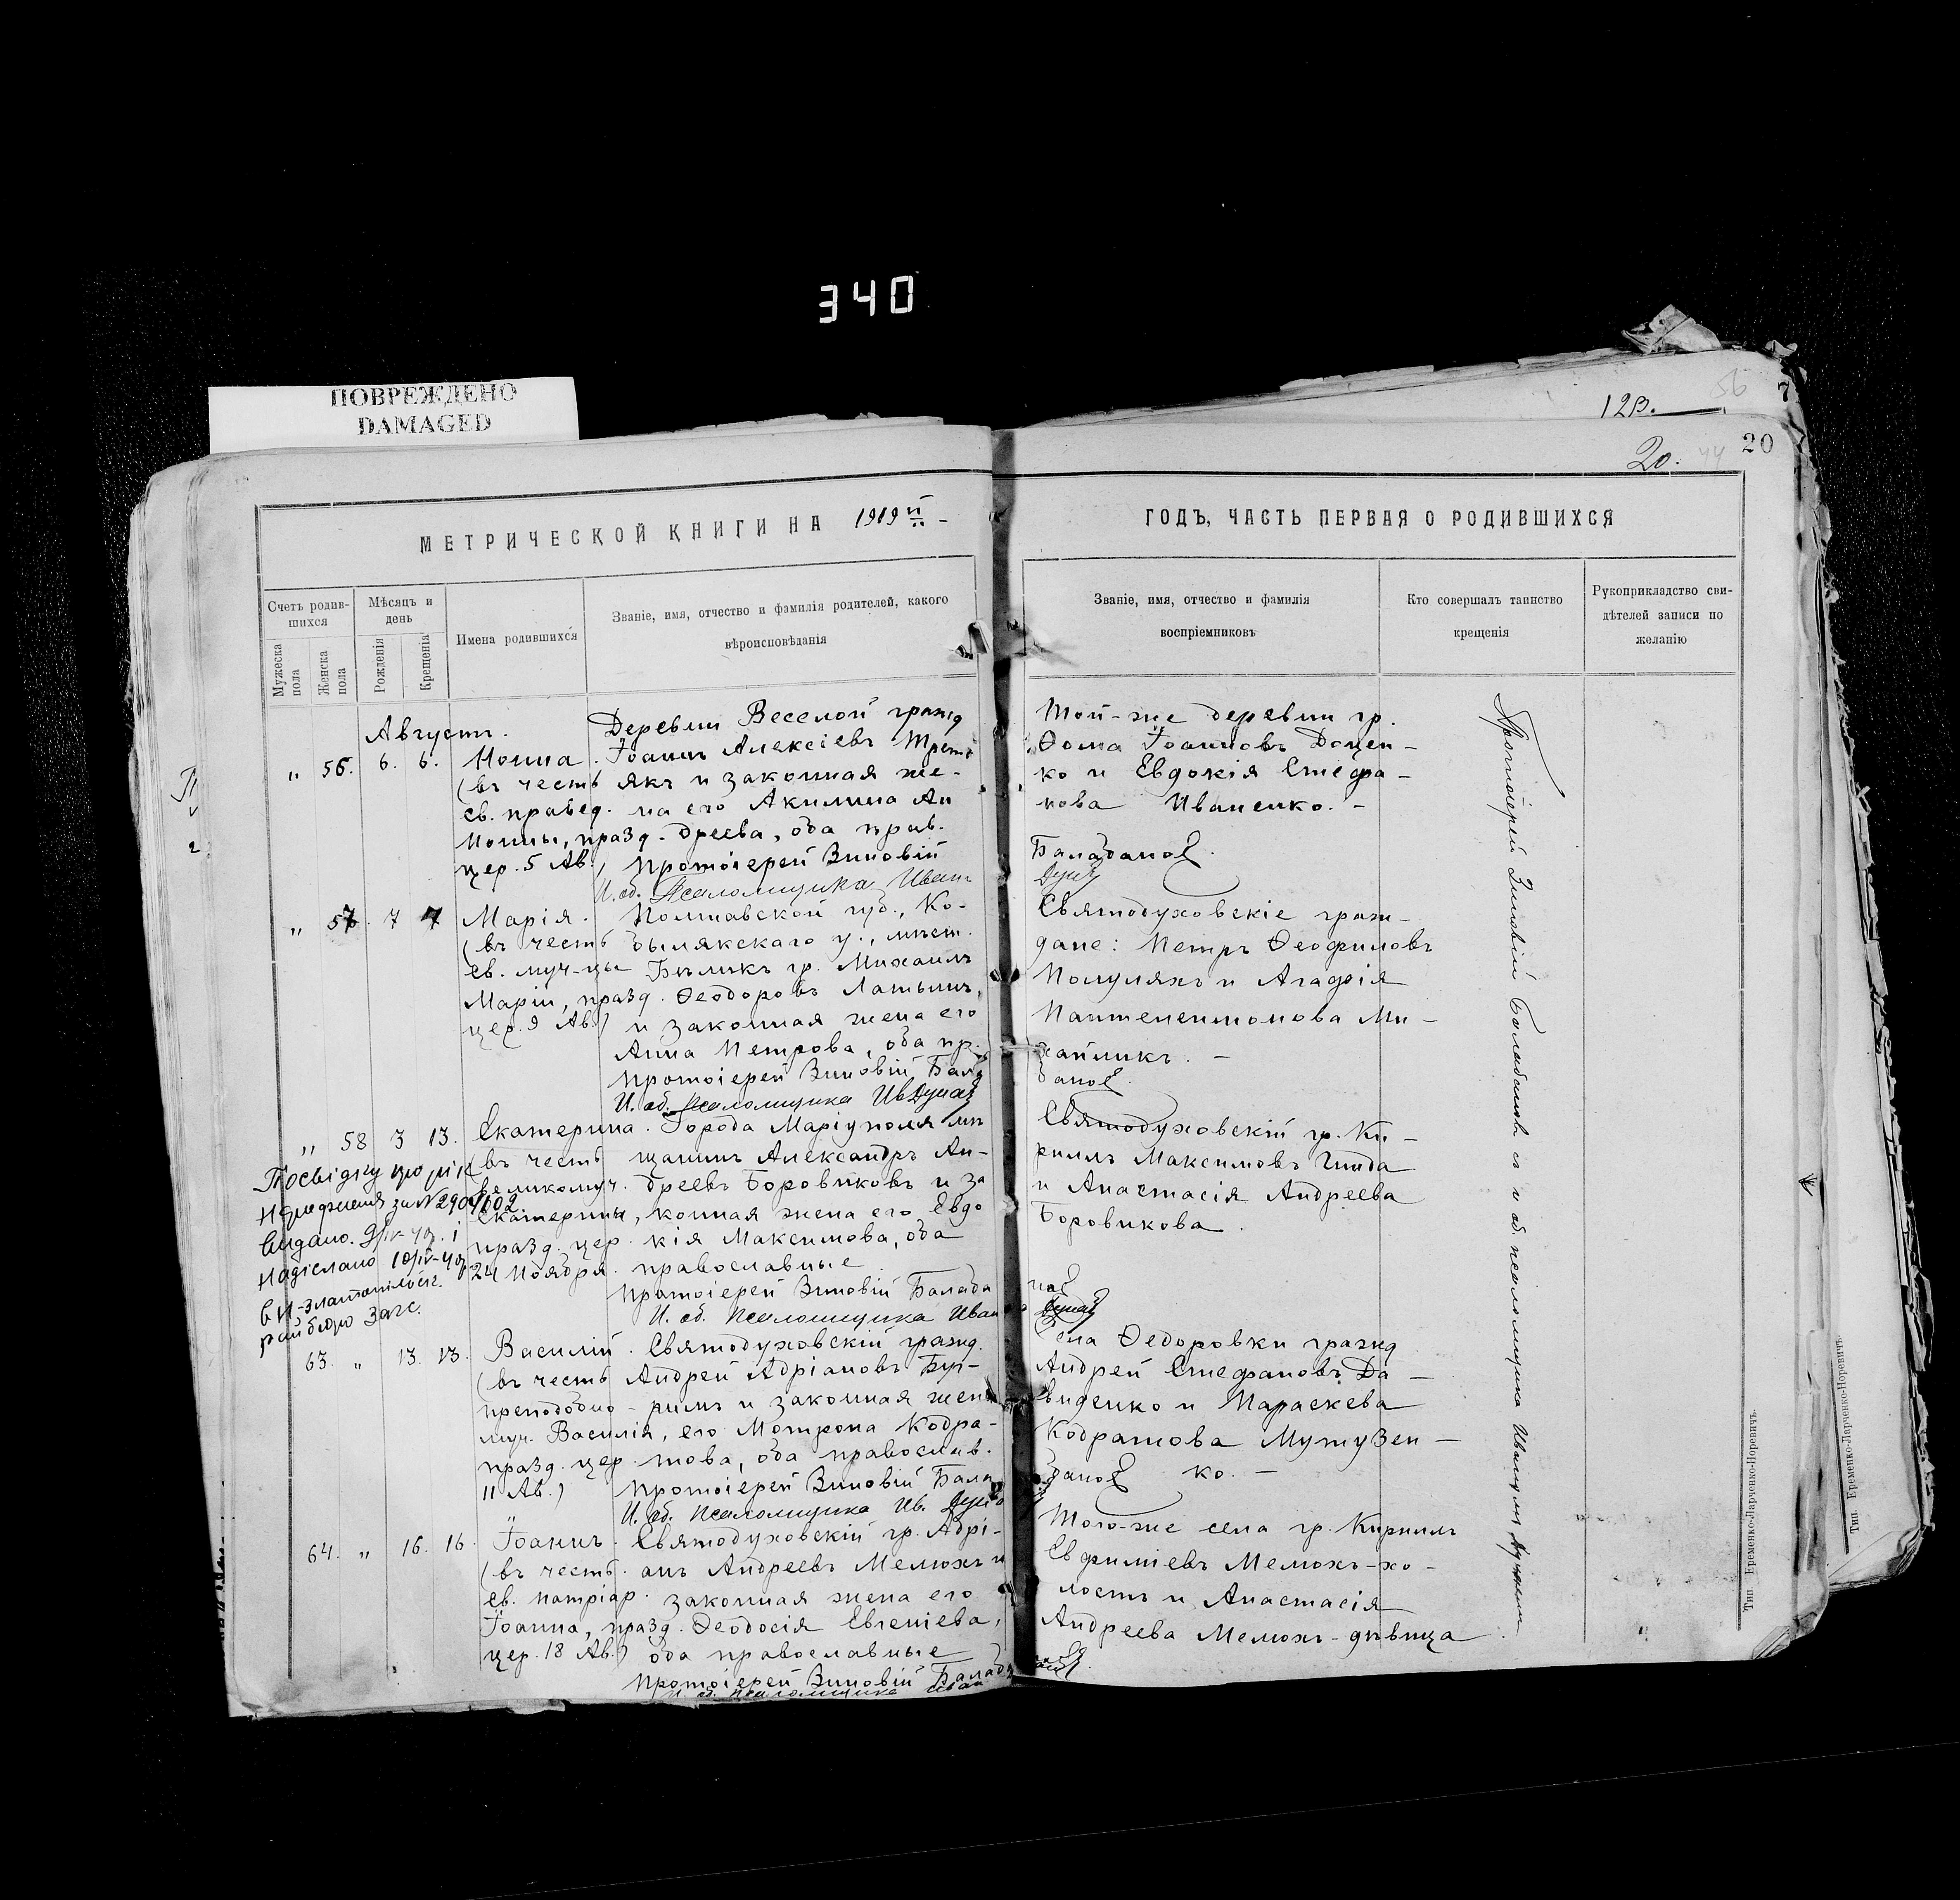 340
ПОВРЕЖДЕНО
DAMAGED
56
7
123.
20
20. 44
МЕТРИЧЕСКОЙ КНИГИ НА 1919 й
ГОДЪ, ЧАСТЬ ПЕРВАЯ О РОДИВШИХСЯ
Счетъ родив-
шихся
Мужеска
пола
Женска
пола
Мѣсяцъ и
день
Рожденія
Крещенія
Имена родившихся
Званіе, имя, отчество и фамилія родителей, какого
вѣроисповѣданія
Званіе, имя, отчество и фамилія
воспріемниковъ
Кто совершалъ таинство
крещенія
Рукоприкладство сви-
дѣтелей записи по
желанію
Августъ.
„ 56. 6. 6.
Нонна.
(въ честь
св. правед.
Нонны, празд.
цер. 5 Ав.)
Деревни Веселой гражд
Іоаннъ Алексіевъ Трет
якъ и законная же-
на его Акилина Ан
дреева, оба прав.
Протоіерей Зиновій
И. об. Псаломщика Иван
Той-же деревни гр.
Ѳома Іоанновъ Доцен-
ко и Евдокія Стефа-
нова Иваненко. -
Балабанов
„ 57. 7 7
Марія.
(въ честь
св. муч-цы
Маріи, празд.
цер. 9 Ав.)
Полтавской губ., Ко-
былякскаго у., мѣст.
Бѣликъ гр. Михаилъ
Ѳеодоровъ Латышъ,
и законная жена его
Анна Петрова, оба пр.
Протоіерей Зиновій Бала
И. об. Псаломщика Ив Дунай
Святодуховскіе граж-
дане: Петръ Ѳеофиловъ
Полуляхъ и Агафія
Пантелеимонова Ми-
хайликъ. -
банов
„ 58 3 13.
Екатерина.
(въ честь
великомуч.
Екатерины,
празд. цер.
24 Ноября.
Города Маріуполя мѣ
щанинъ Александръ Ан-
дреевъ Боровиковъ и за
конная жена его Евдо
кія Максимова, оба
православные
Протоіерей Зиновій Балаба
И. об. Псаломщика Иван
Святодуховскій гр. Ки-
риллъ Максимовъ Гнида
и Анастасія Андреева
Боровикова.
нов
Дунай
Посвідку про рік
видано.
Надіслано
райбюро Загс.
63. „ 13. 13.
Василій.
(въ честь
преподобно-
муч. Василія,
празд. цер.
11 Ав.)
Святодуховскій гражд.
Андрей Адріановъ Бур-
римъ и законная жена
его Мотрона Кодра-
това, оба православ.
Протоіерей Зиновій Бала
И. об. Псаломщика Ив. Дуна
Села Ѳедоровки гражд
Андрей Стефановъ Да-
виденко и Параскева
Кодратова Мутузен-
банов ко. -
64. „ 16. 16.
Іоаннъ.
(въ честь
св. патріар.
Іоанна, празд.
цер. 18 Ав.)
Святодуховскій гр. Адрі-
анъ Андреевъ Мелюхъ и
законная жена его
Ѳеодосія Евгеніева,
оба православные
Протоіерей Зиновій Балаб
И. об. Псаломщика Иван
Того-же села гр. Кириллъ
Евфиміевъ Мелюхъ-хо-
лостъ и Анастасія
Андреева Мелюхъ-дѣвица.
Протоіерей Зиновій Балабановъ и и. об. псаломщика Иванъ Дунай
Тип. Еременко-Ларченко-Норевичъ.
Тип. Еременко-Ларченко-Норевичъ.